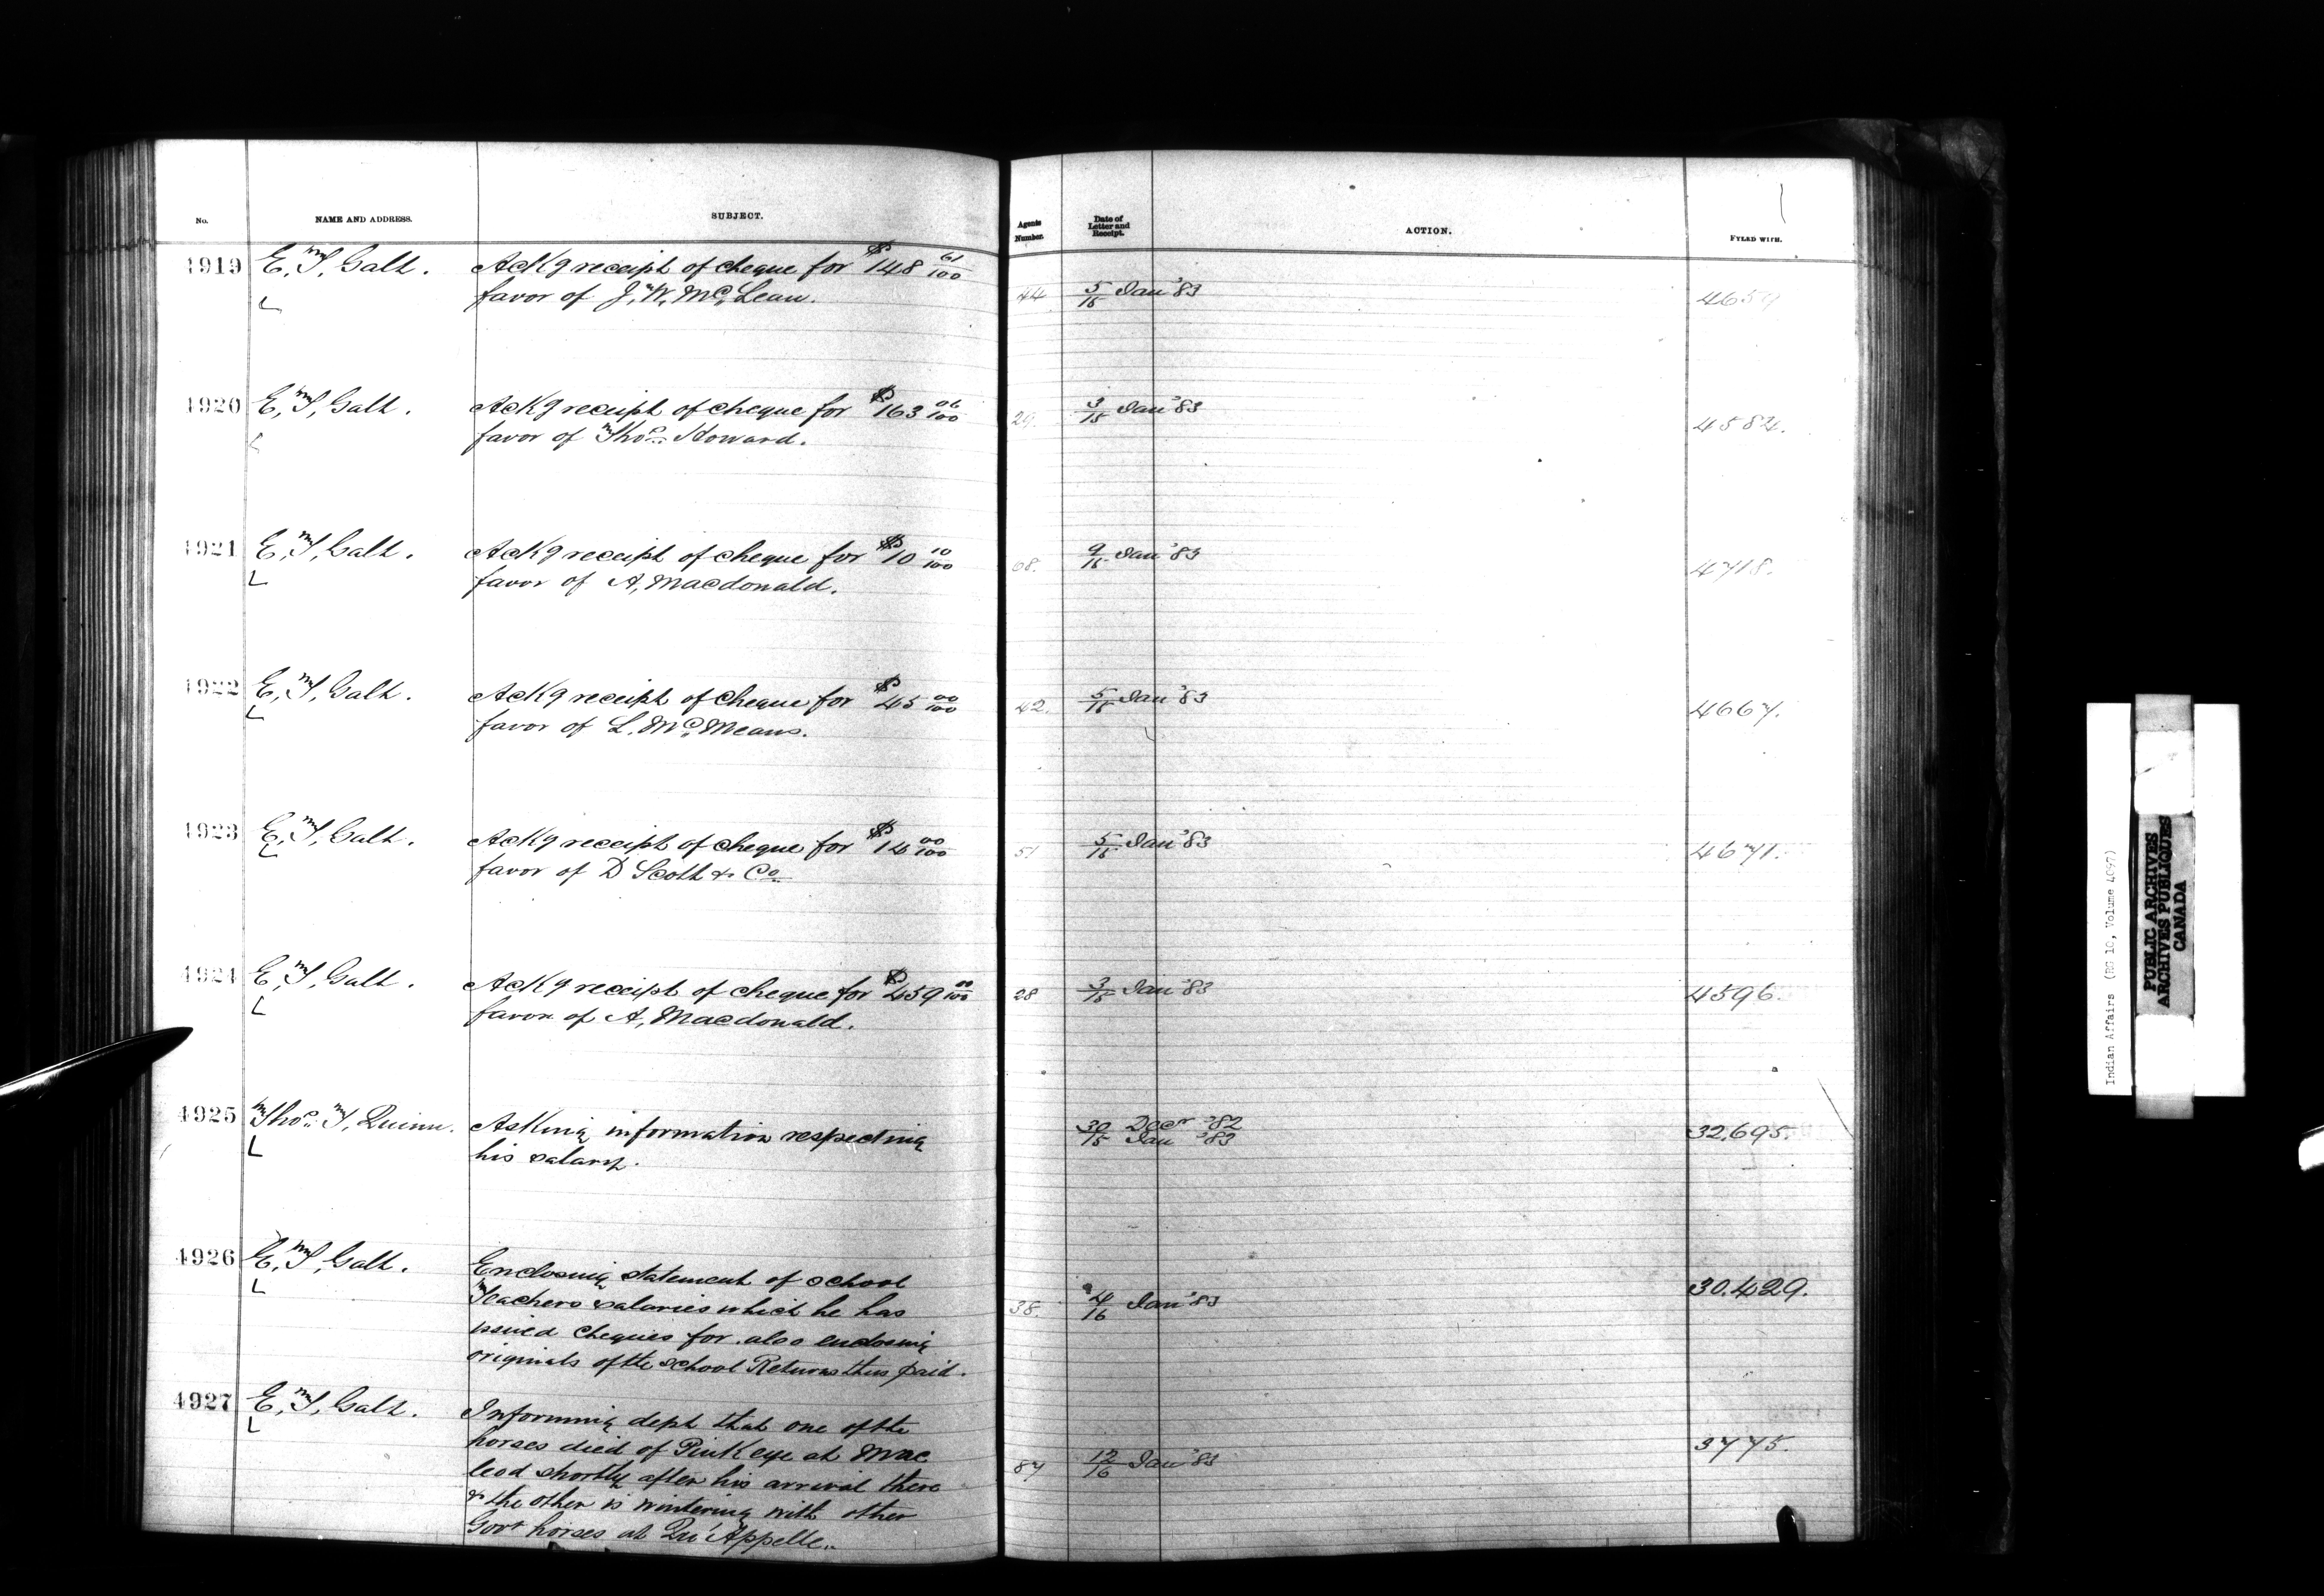 No. NAME AND ADDRESS. SUBJECT. Agents Number. Date of Letter and Receipt. ACTION. FYLED WITH.
4919 E, T, Galt. Ackg receipt of cheque for $148 61/100
favor of J, W, McLean. 44 5/15 Jan '83
4920 E, T, Galt. Ackg receipt of cheque for $163 06/100 29. 3/15 Jan '83
favor of Thos. Howard. 4584.
4921 E, T, Galt. Ackg receipt of cheque for $10 10/100 68. 9/15 Jan '83
favor of A, Macdonald. 4718.
4922 E, T, Galt. Ackg receipt of cheque for $45 00/100 42. 5/15 Jan '83 4667.
favor of L. McMeans.
4923 E, T, Galt. Ackg receipt of cheque for $16 00/100 51 5/15 Jan '83 4671.
favor of D Scott & Co
4924 E, T, Galt. Ackg receipt of cheque for $459 00/100 28 3/15 Jan '83 4596.
favor of A, Macdonald.
4925 Thos. T, Quinn. Asking information respecting 30 Decr '82 32,695.
his salary. 15 Jan '83
4926 E, T, Galt. Enclosing statement of school 30.429.
Teachers salaries which he has 38. 4/16 Jan '83
issued cheques for. also enclosing
originals of the school Returns thus paid.
4927 E, T, Galt. Informing dept that one of the
horses died of Pink eye at Mac 3775.
leod shortly after his arrival there 87 12/16 Jan '83
& the other is wintering with other
Govt horses at Qu'Appelle.
Indian Affairs (RG 10, Volume 4097)
PUBLIC ARCHIVES
ARCHIVES PUBLIQUES
CANADA